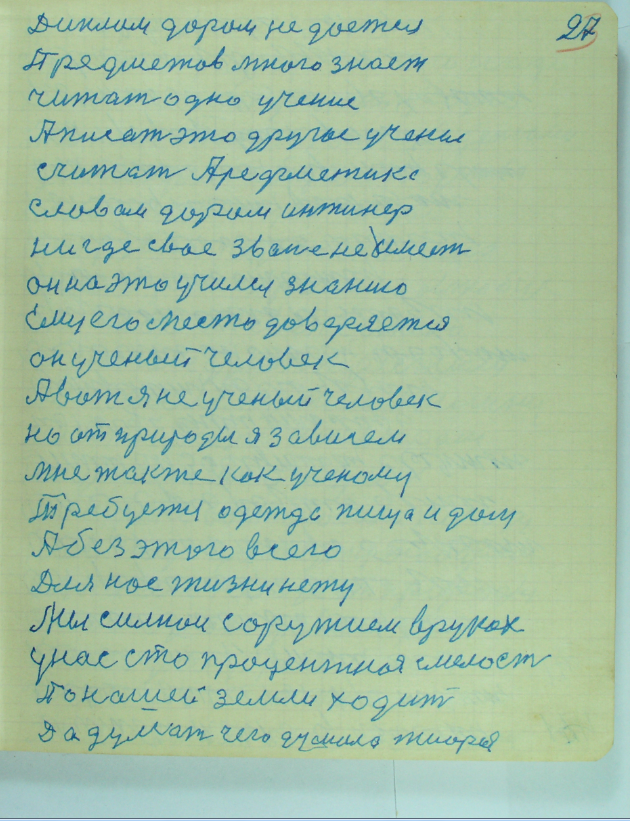 27
Диплом даром не доется
Предметов много знает
читат одно учение
А писат это другое учение
считат Аредметика
словам даром интинер
ни где свое зваже не имеет
он на это учился знанию
Ему его место доверяется
он ученый человек
А вот я не ученый человек
но от природы я зависем
мне также как ученому
Требуетя одежда пища и дом
А без этого всего
Для нас жизни нету
Мы силнои соружием в руках
у нас сто процентная смелост
По нашей земли ходит
Да думат чего